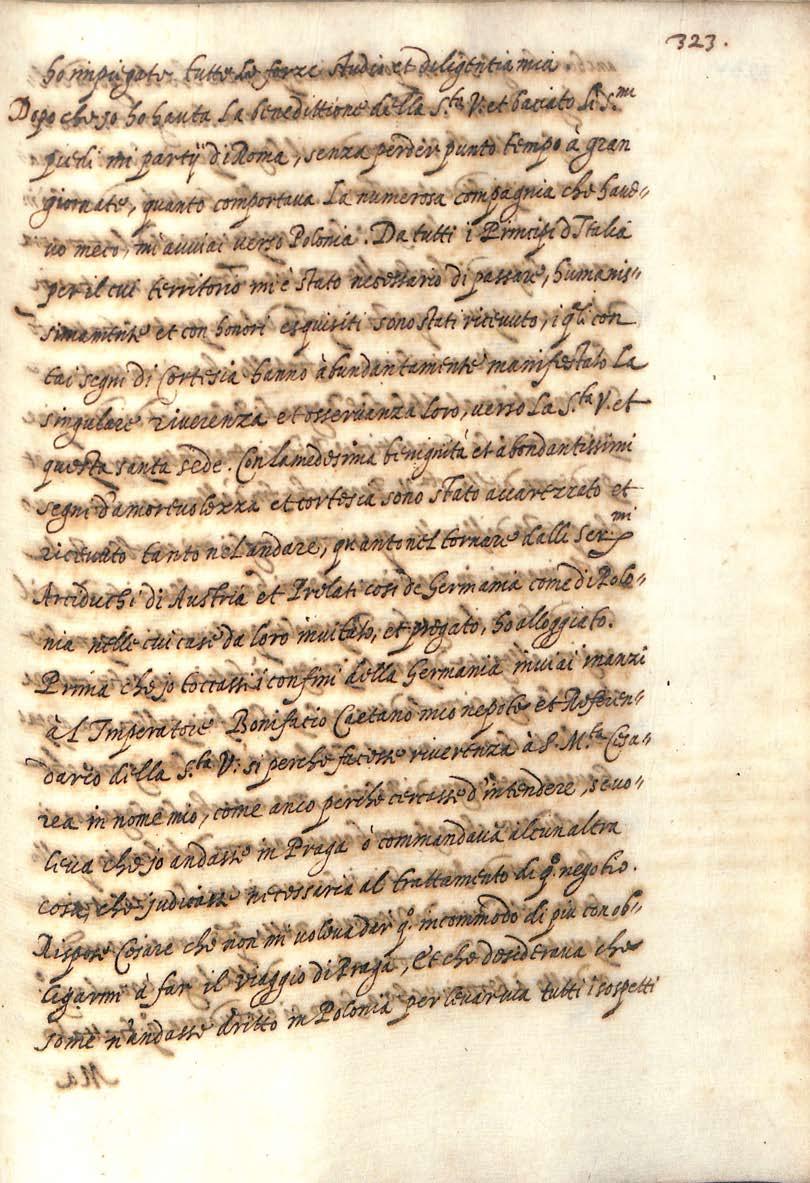 323.
ho impiegate tutte le forze studio et diligentia mia
Dopo che jo ho hauta la benedittione della S.ta V. et baciato li S.mi
piedi mi partÿ di Roma, senza perder punto tempo à gran
giornate, quanto comportava la numerosa compagnia che have„
vo meco, mi avviai verso Polonia. Da tutti i Principi d'Italia
per il cui territorio mi è stato necessario di passare, humanis„
simamente et con honori esquisiti sono stati ricevuto, i q.li con
tai segni di Cortesia hanno àbundantamente manifestato la
singulare riverenza et osservanza loro, verso la S.ta V. et
questa santa sede. Con la medesima benignità et àbondantissimi
segni d'amorevolezza et cortesia sono stato accarezzato et
ricevuto tanto nel andare, quanto nel tornare dalli Ser.mi
Arciduchi di Austria et Prelati cosi de Germania come di Polo„
nia nelle cui case da loro invitato, et pregato, ho alloggiato.
Prima che jo toccassi i confini della Germania inviai inanzi
à l'Imperatore Bonifacio Caetano mio nepote et Referen„
dario della S.ta V: si perche facesse riverenza à S. M.ta Cesa„
rea in nome mio, come anco perche cercasse d'intendere, se vo„
leva che jo andasse in Praga ò commandava alcun altra
cosa, che judicasse necessaria al trattamento di q.o negotio.
Rispose Cesare che non mi voleva dar q.o incommodo di più con ob„
ligarmi à far il viaggio di Praga, et che desiderava che
jo me n'andasse dritto in Polonia per levar via tutti i sospetti